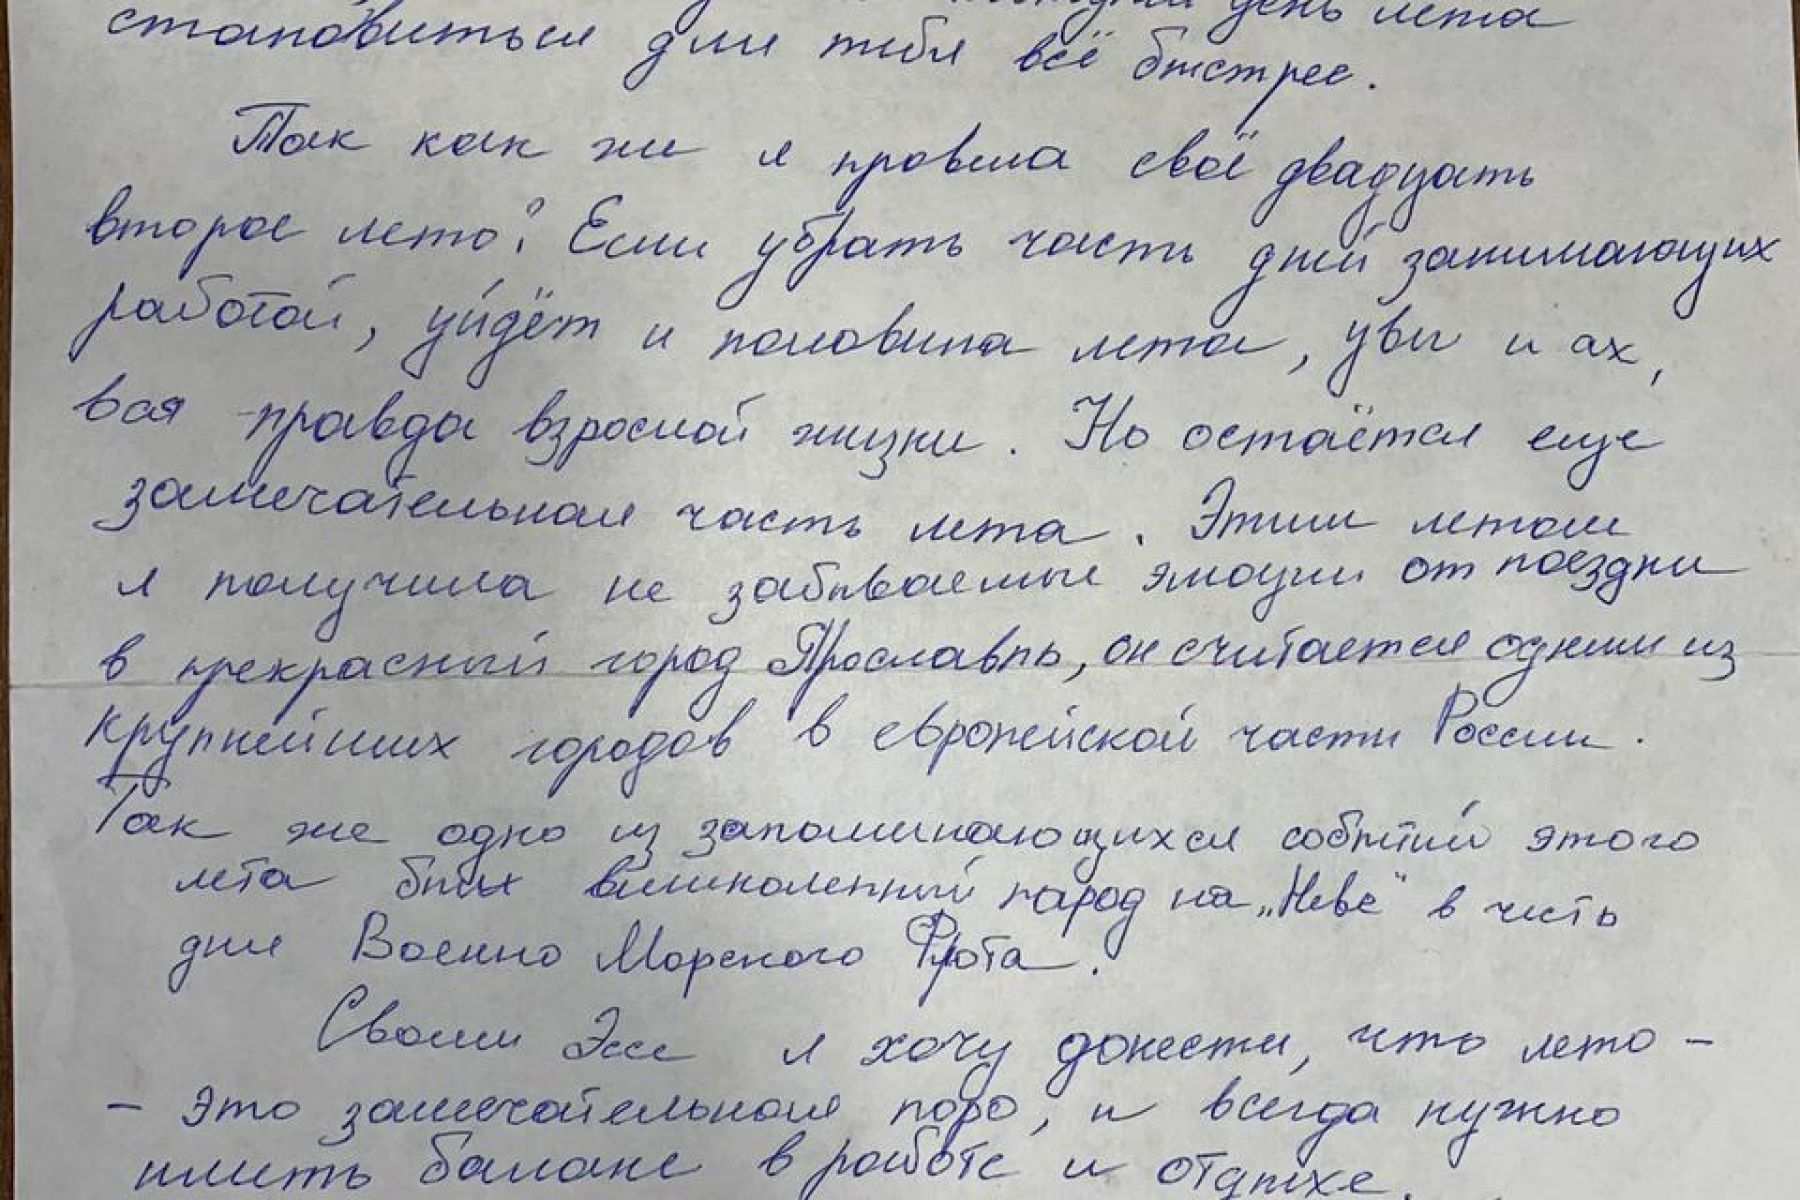 день лета
становиться для тебя всё быстрее.
Так как же я провела своё двадцать
второе лето? Если убрать часть дней занимающих
работой, уйдёт и половина лета, увы и ах,
вся правда взрослой жизни. Но остаётся еще
замечательная часть лета. Этим летом
я получила не забываемые эмоции от поездки
в прекрасный город Ярославль, он считается одним из
крупнейших городов в европейской части России.
Так же одно из запоминающихся событий этого
лета был великолепный парад на „Неве" в честь
дня Военно Морского Флота.
Своим Эссе я хочу донести, что лето -
- это замечательная пора, и всегда нужно
иметь баланс в работе и отдыхе.